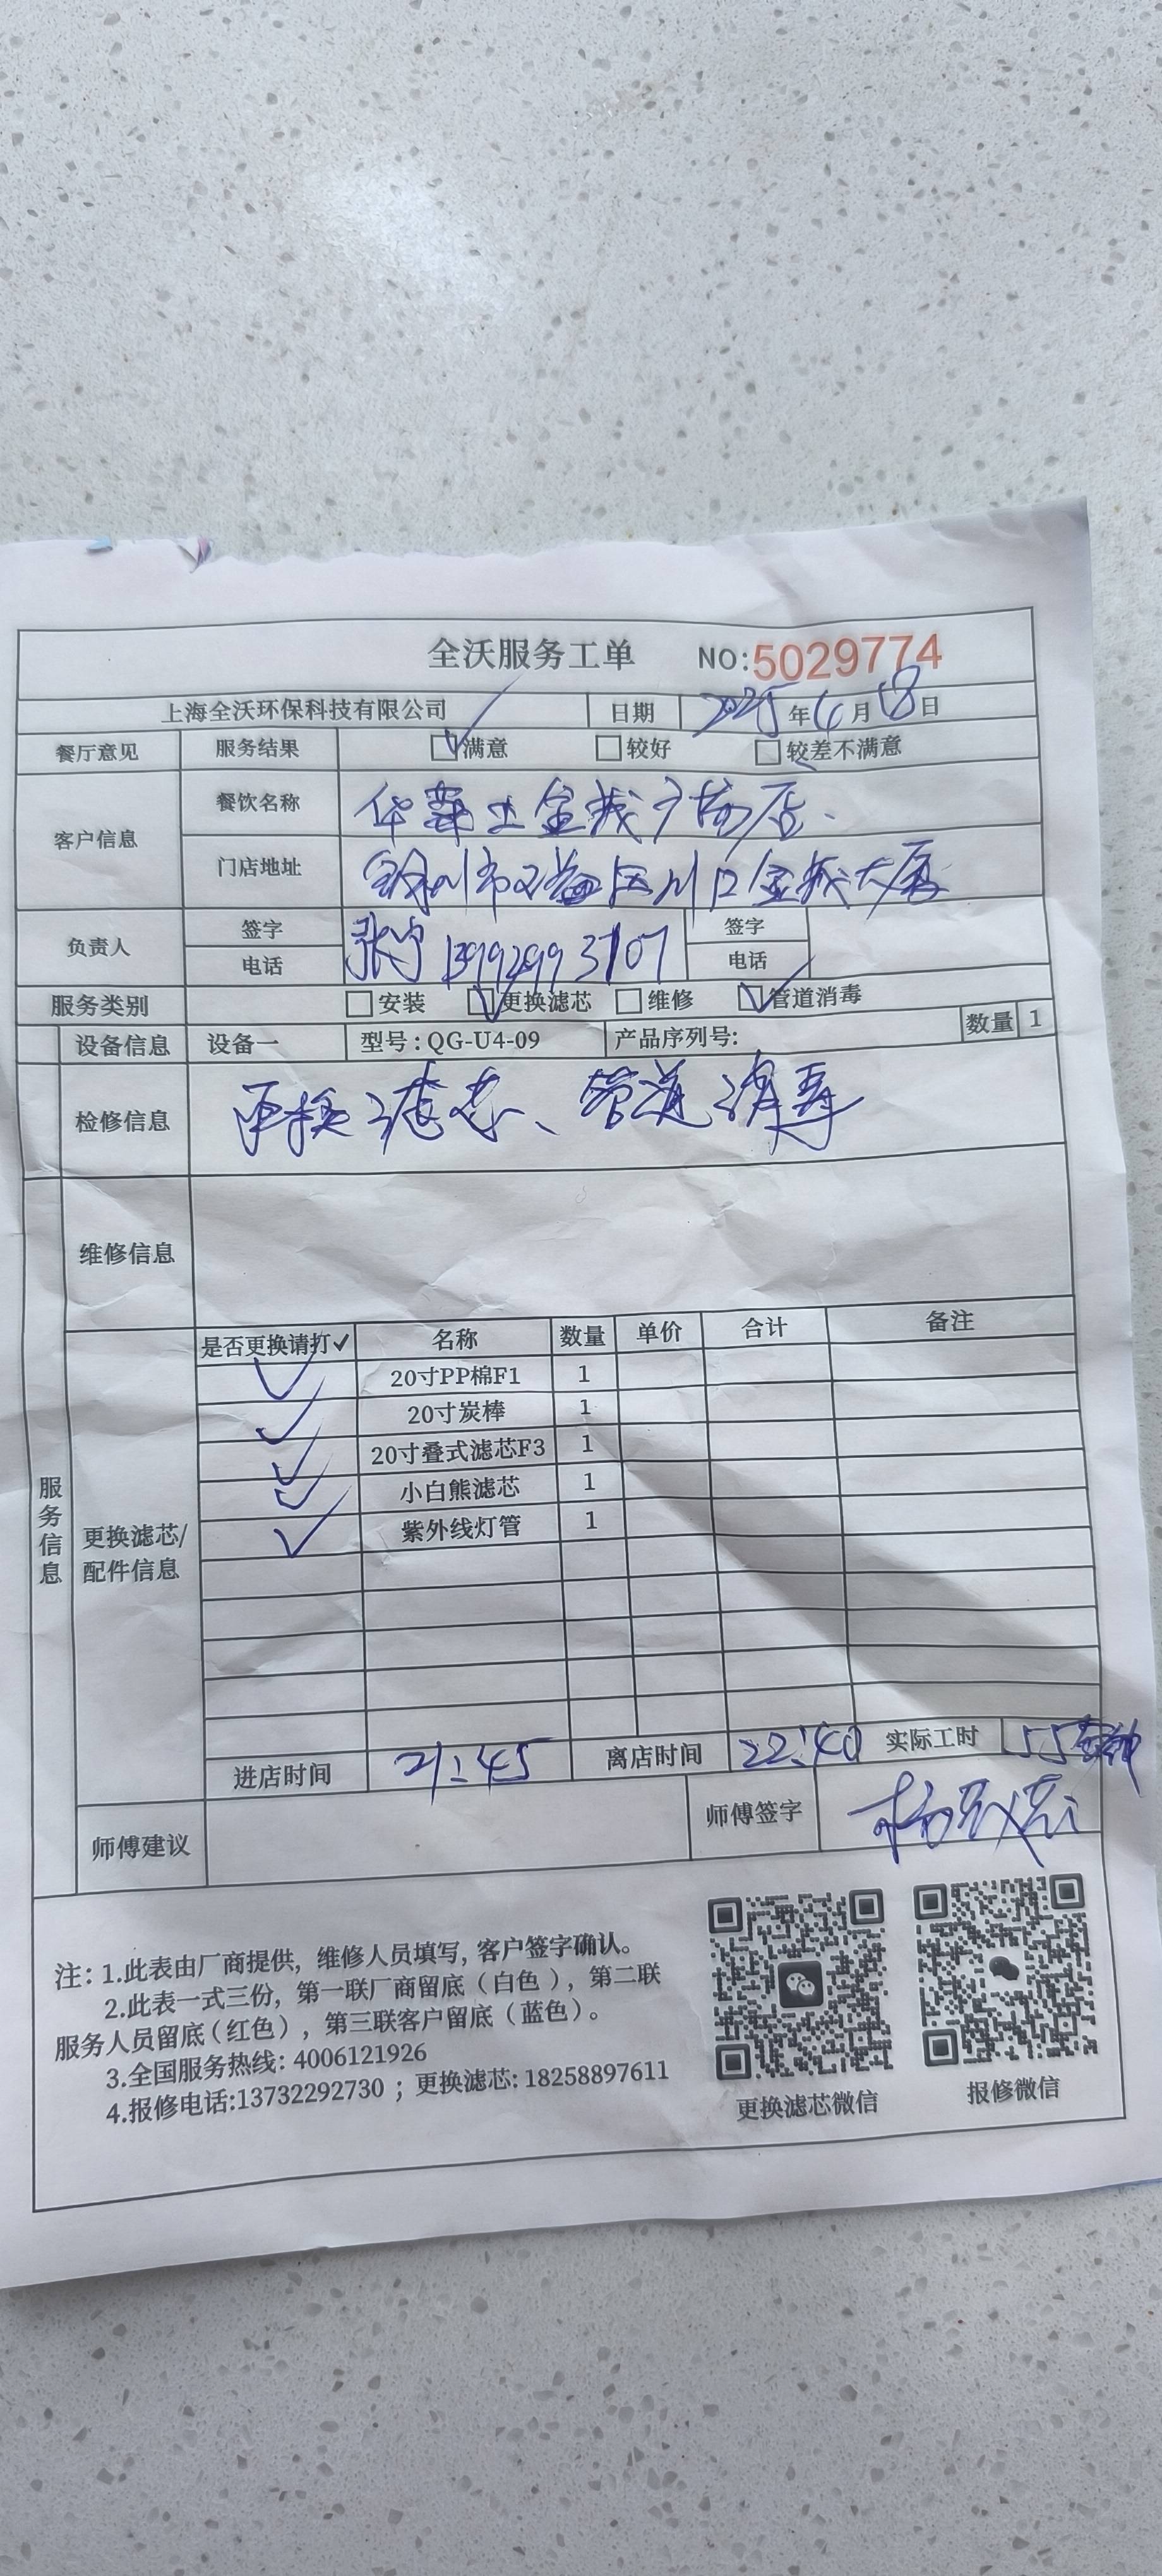 全沃服务工单 NO:5029774
上海全沃环保科技有限公司 日期 2025年6月18日
餐厅意见 服务结果 满意 较好 较差不满意
客户信息 餐饮名称 华莱士金城广场店
门店地址 市 区川口金城大厦
负责人 签字 张宁 电话 13992993707 签字 电话
服务类别 安装 更换滤芯 维修 管道消毒
设备信息 设备一 型号:QG-U4-09 产品序列号: 数量 1
检修信息 更换滤芯、管道消毒
维修信息
服务信息
更换滤芯/配件信息
是否更换请打✓ 名称 数量 单价 合计 备注
✓ 20寸PP棉F1 1
✓ 20寸炭棒 1
✓ 20寸叠式滤芯F3 1
✓ 小白熊滤芯 1
✓ 紫外线灯管 1
进店时间 21:45 离店时间 22:40 实际工时 55分钟
师傅建议 师傅签字 杨
注:1.此表由厂商提供,维修人员填写,客户签字确认。
2.此表一式三份,第一联厂商留底(白色),第二联
服务人员留底(红色),第三联客户留底(蓝色)。
3.全国服务热线:4006121926
4.报修电话:13732292730;更换滤芯:18258897611
更换滤芯微信 报修微信